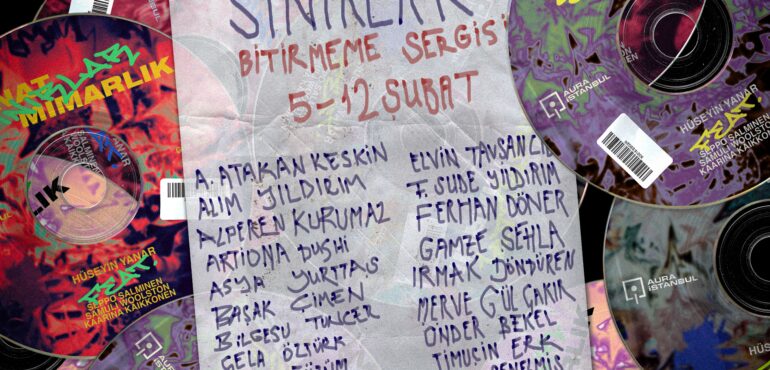 SINIRLAR
BİTİRMEME SERGİSİ
5-12 ŞUBAT
A. ATAKAN KESKİN
ALIM YILDIRIM
ALPEREN KURUMAZ
ARTIONA DUSHI
ASYA YURTTAS
BAŞAK ÇİMEN
BİLGESU TUNCER
ÖZTÜRK
ELVİN
F. SUDE YILDIRIM
FERHAN DÖNER
GAMZE SEHLA
IRMAK DÖNDÜREN
MERVE GÜL ÇAKIR
ÖNDER BEKEL
TİMUÇİN ERK
MIMARLIK
HÜSEYİN YANAR
FEAT.
SEPPO SALMINEN
SAMULI WOOLSTON
KAARINA KAIKKONEN
AURA
ISTANBUL
HÜSEYİN YANAR
FEAT.
SEPPO SALMINEN
SAMULI WOOLSTON
KAARINA KAIKKONEN
AURA
ISTANBUL